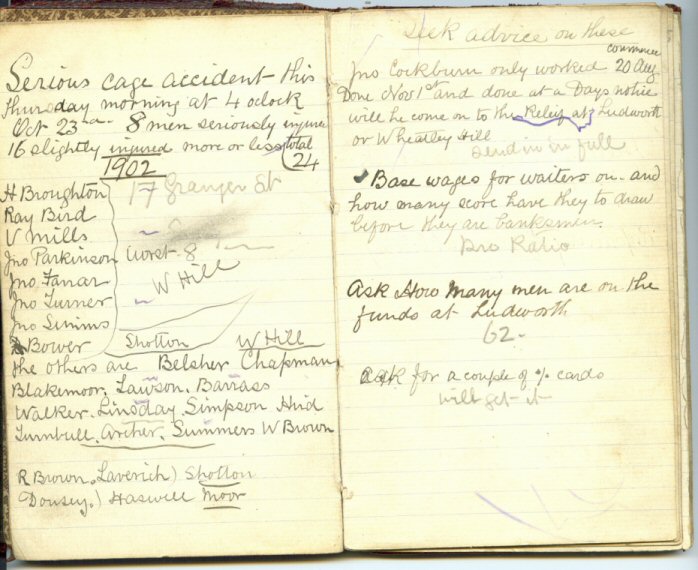 Serious cage accident this
Thursday morning at 4 oclock
Oct 23rd 8 men seriously injured
16 slightly injured more or less total
1902 24
H Broughton 17 Granger St
Ray Bird
V Mills
Jno Parkinson Worst 8
Jno Farrar W Hill
Jno Turner
Jno Simms
Bower Shotton W Hill
the others are Belsher Chapman
Blakemoor. Lawson. Barrass
Walker. Linsday. Simpson Hird
Turnbull. Archer. Summers W Brown
R Brown. Laverich) Shotton
Dousey.) Haswell Moor
Seek advice on these
commence
Jno Cockburn only worked 20 Aug
Done Nov 1st and done at a Days notice
will he come on to the Releig at Ludworth
or Wheatley Hill
send in in full
Base wages for waiters on - and
how many score have they to draw
before they are banksmen.
Pro Ratio
Ask How Many men are on the
funds at Ludworth
62 -
ask for a couple of % cards
will get it